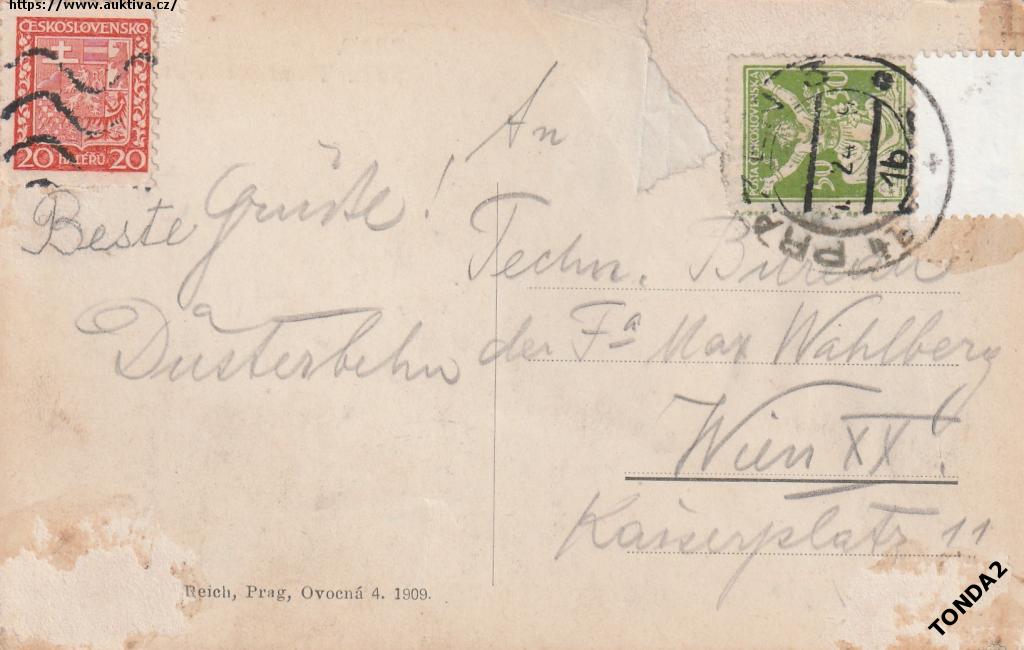 https://www.auktiva.cz/
ČESKOSLOVENSKO
20 HALÉŘŮ 20
POŠTA ČESKOSLOVENSKÁ
50 50
24
1b
PRA
Beste Grüße!
Düsterbehn
An
Techn. Bureau
der Fa Max Wahlberg
Wien XX!
Kaiserplatz 11
Reich, Prag, Ovocná 4. 1909.
TONDA2